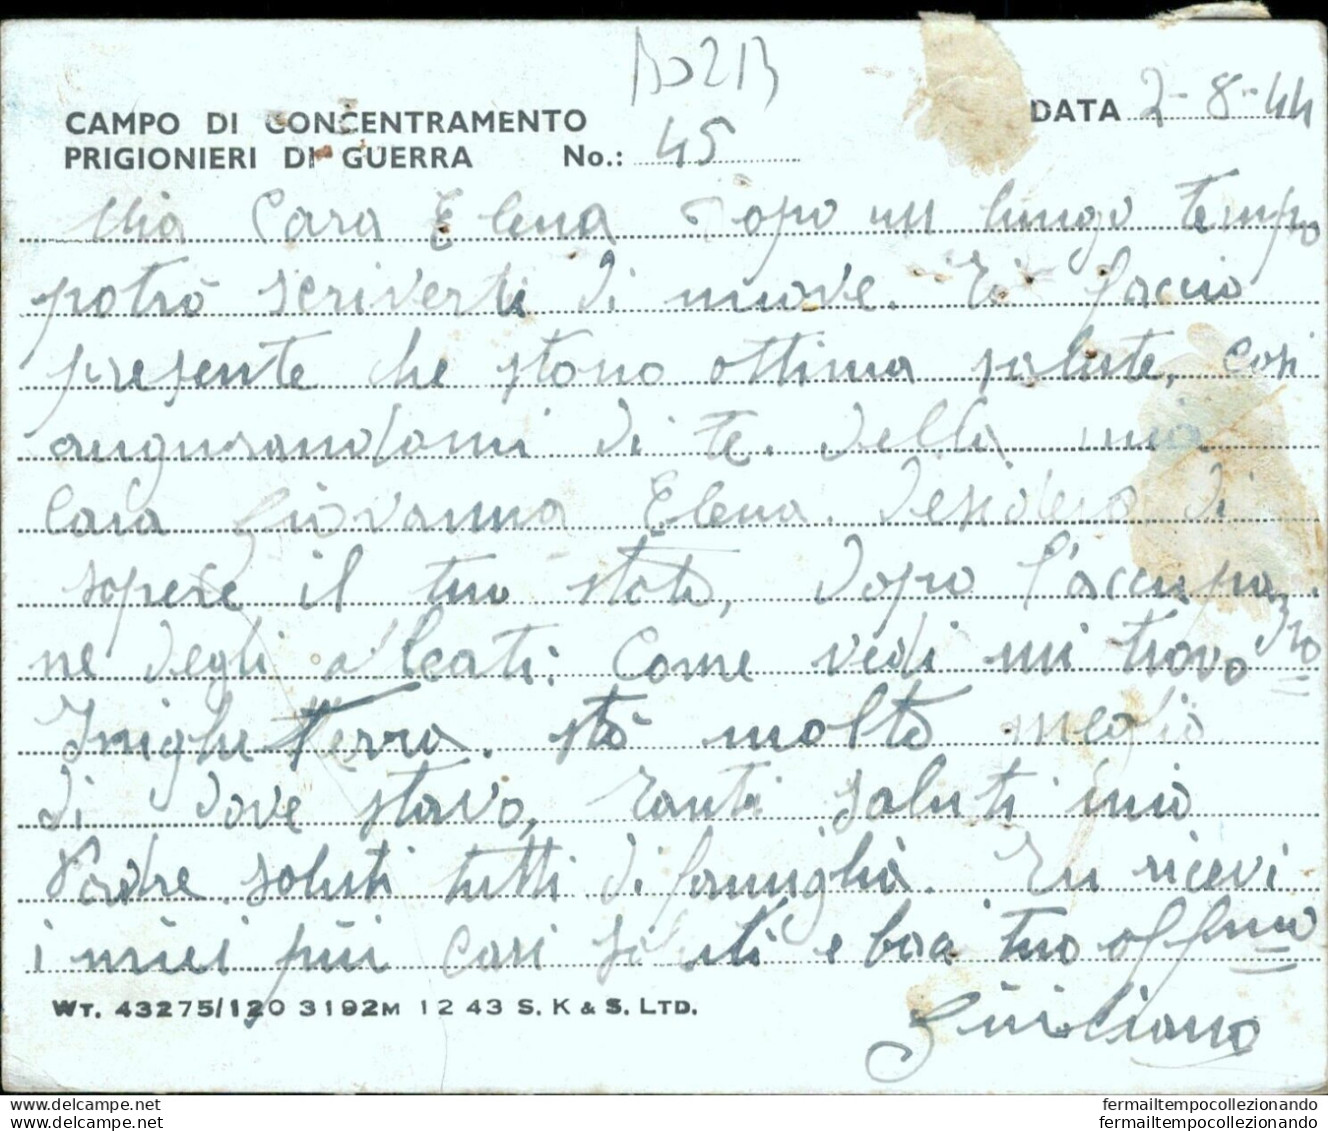 BO2B
CAMPO DI CONCENTRAMENTO
PRIGIONIERI DI GUERRA No.: 45
DATA 2-8-44
Mia Cara Elena Dopo un lungo tempo
potrò scriverti di nuove. Ti faccio
presente che stono ottima salute, cosi
augnorandomi di te. Della mia
Cara Giovanna Elena. Desidero di
sapere il tuo stato, dopo l'accupazio
ne degli alleati: Come vedi mi trovo
Inighilterra. stò molto meglio
di dove stavo, Tanti saluti mio
Padre saluti tutti di famiglia. Tu ricevi
i miei piú cari saluti e baci tuo affmo
Giuliano
WT. 43275/120 3192M 12 43 S. K & S. LTD.
fermailtempocollezionando
fermailtempocollezionando
www.delcampe.net
www.delcampe.net